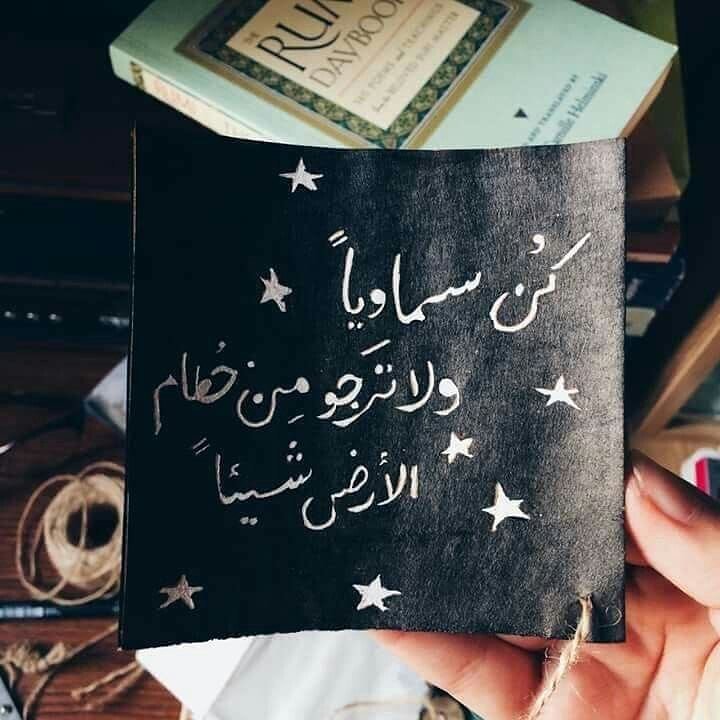 THE
RUM
DAYBOO
365 POEMS and TEACHINGS
from the BELOVED SUFI MASTER
AND TRANSLATED BY
Camille Helminski
كُن سماوياً
ولا ترَجو مِن حُطام
الأرض شيئاً